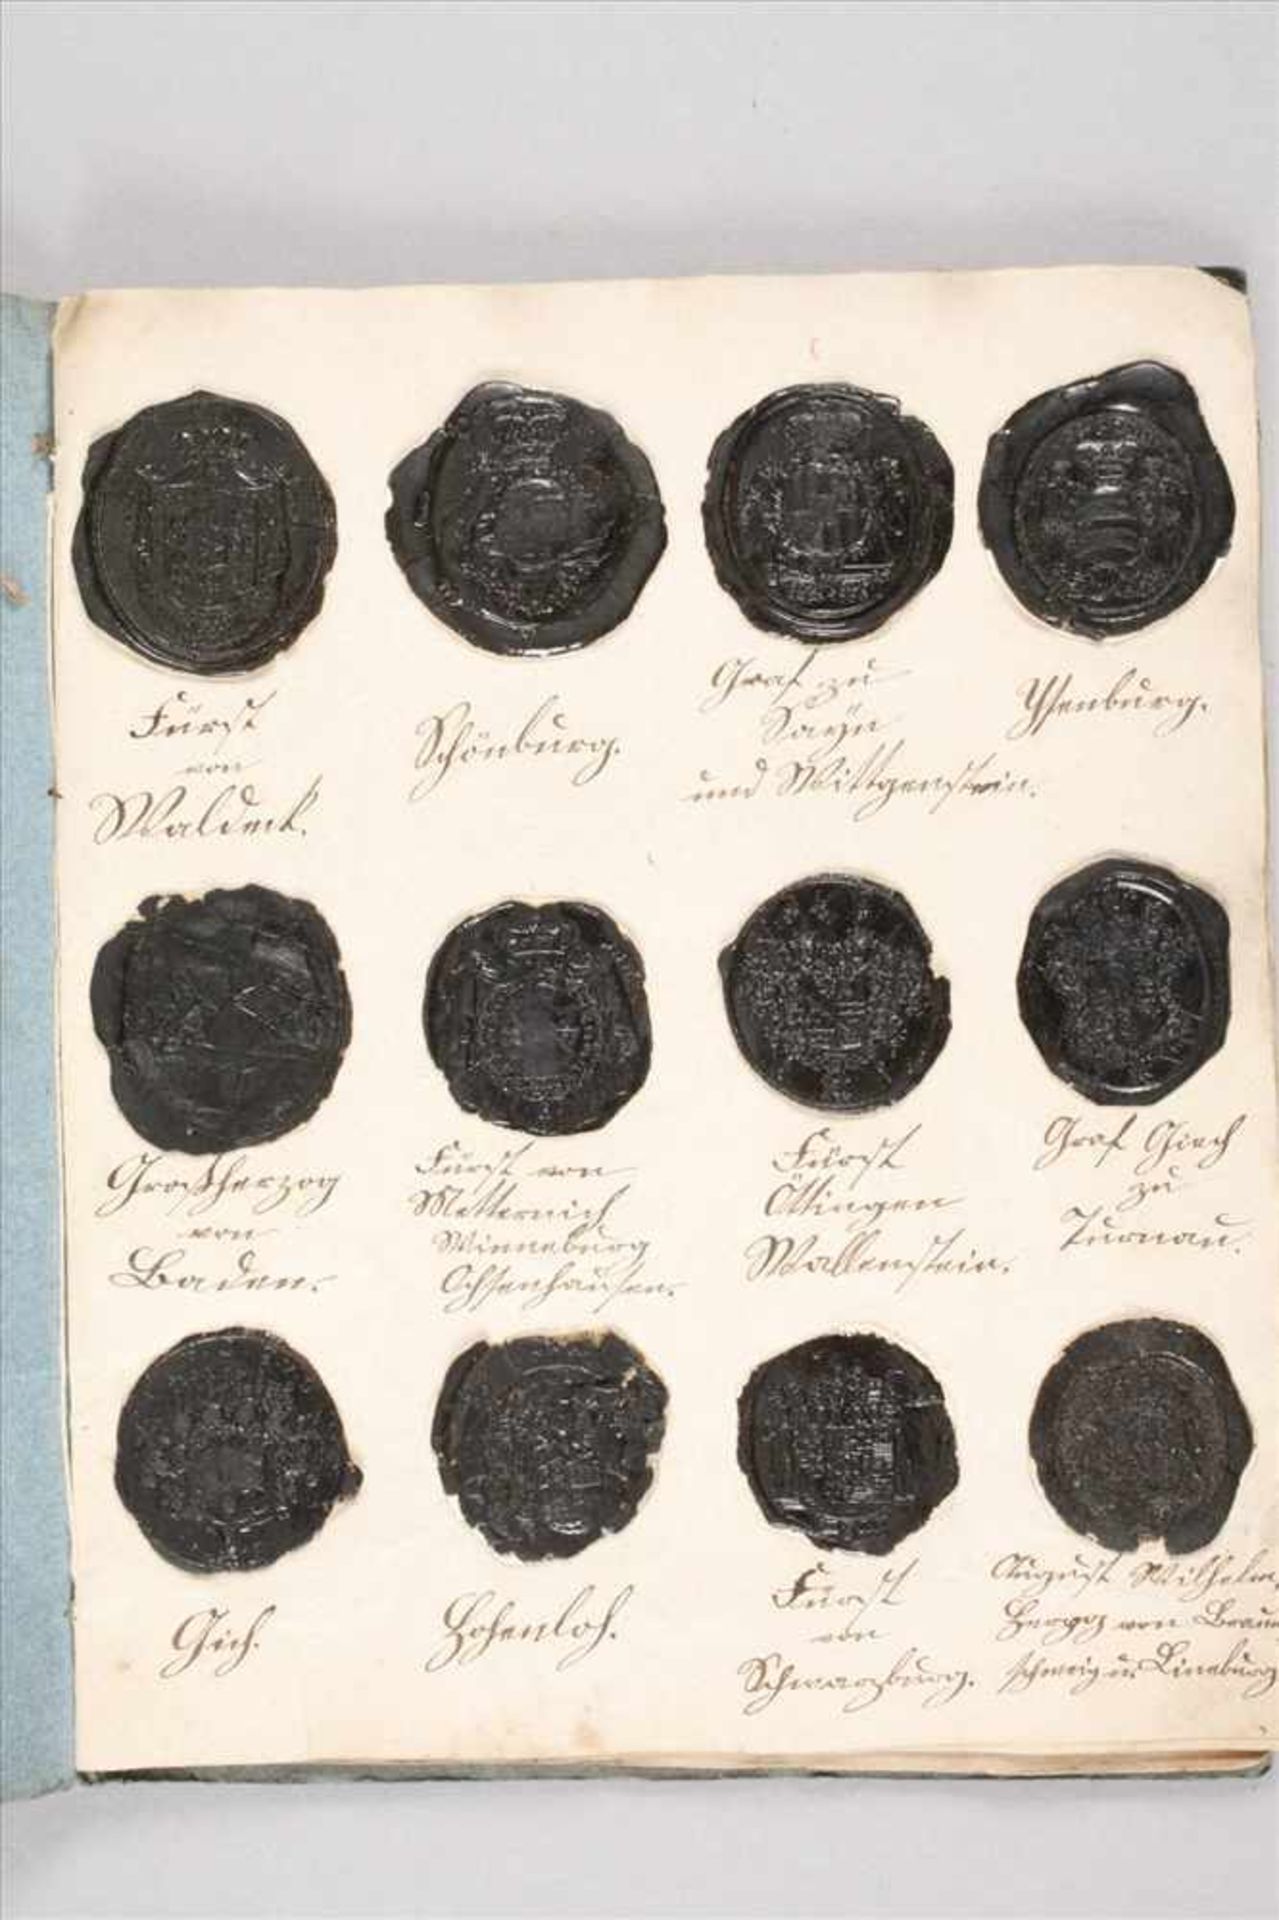 Fürst
von
Waldeck.
Schönburg.
Graf zu
Sayn
und Wittgenstein.
Ysenburg.
Großherzog
von
Baden.
Fürst von
Metternich
Winneburg
Ochsenhausen.
Fürst
Öttingen
Wallenstein.
Graf Giech
zu
Turnau.
Gich.
Hohenloh.
Fürst
von
Schwarzburg.
August Wilhelm,
Herzog von Braun
schweig u. Lineburg